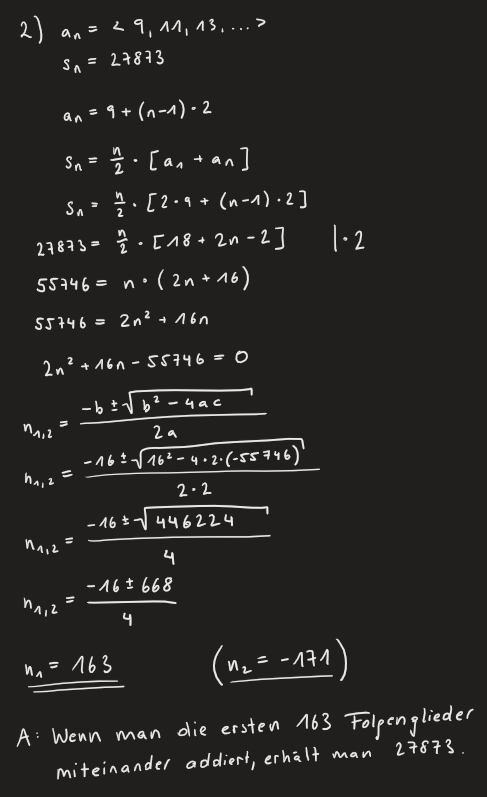 2) aₙ = < 9, 11, 13, ... >
sₙ = 27873
aₙ = 9 + (n-1) · 2
sₙ = n/2 · [a₁ + aₙ]
sₙ = n/2 · [2·9 + (n-1) · 2]
27873 = n/2 · [18 + 2n - 2] | · 2
55746 = n · (2n + 16)
55746 = 2n² + 16n
2n² + 16n - 55746 = 0
n₁,₂ = (-b ± √(b² - 4ac)) / 2a
n₁,₂ = (-16 ± √(16² - 4·2·(-55746))) / 2·2
n₁,₂ = (-16 ± √446224) / 4
n₁,₂ = (-16 ± 668) / 4
n₁ = 163 (n₂ = -171)
A: Wenn man die ersten 163 Folgenglieder
miteinander addiert, erhält man 27873.